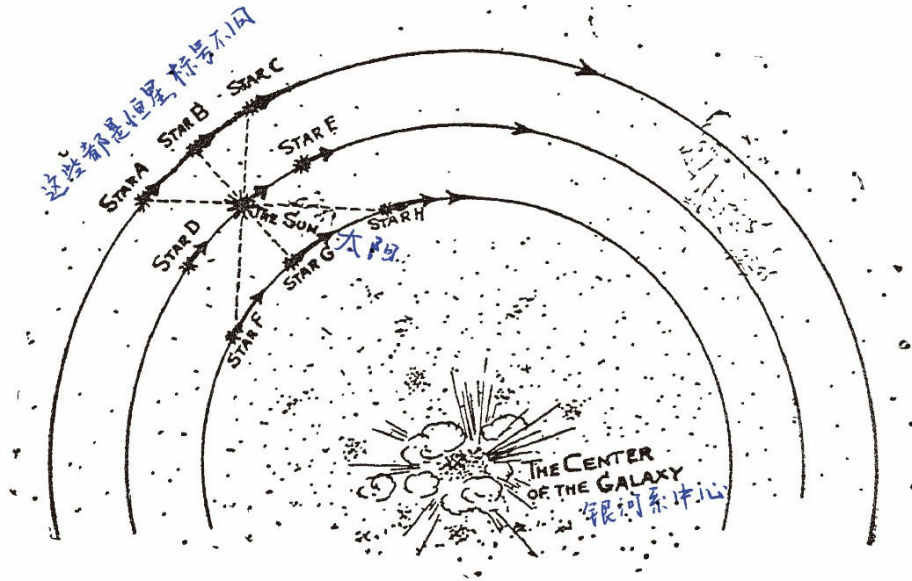 这些都是恒星,标号不同
STAR A
STAR B
STAR C
STAR D
THE SUN
STAR E
太阳
STAR F
STAR G
STAR H
THE CENTER
OF THE GALAXY
银河系中心